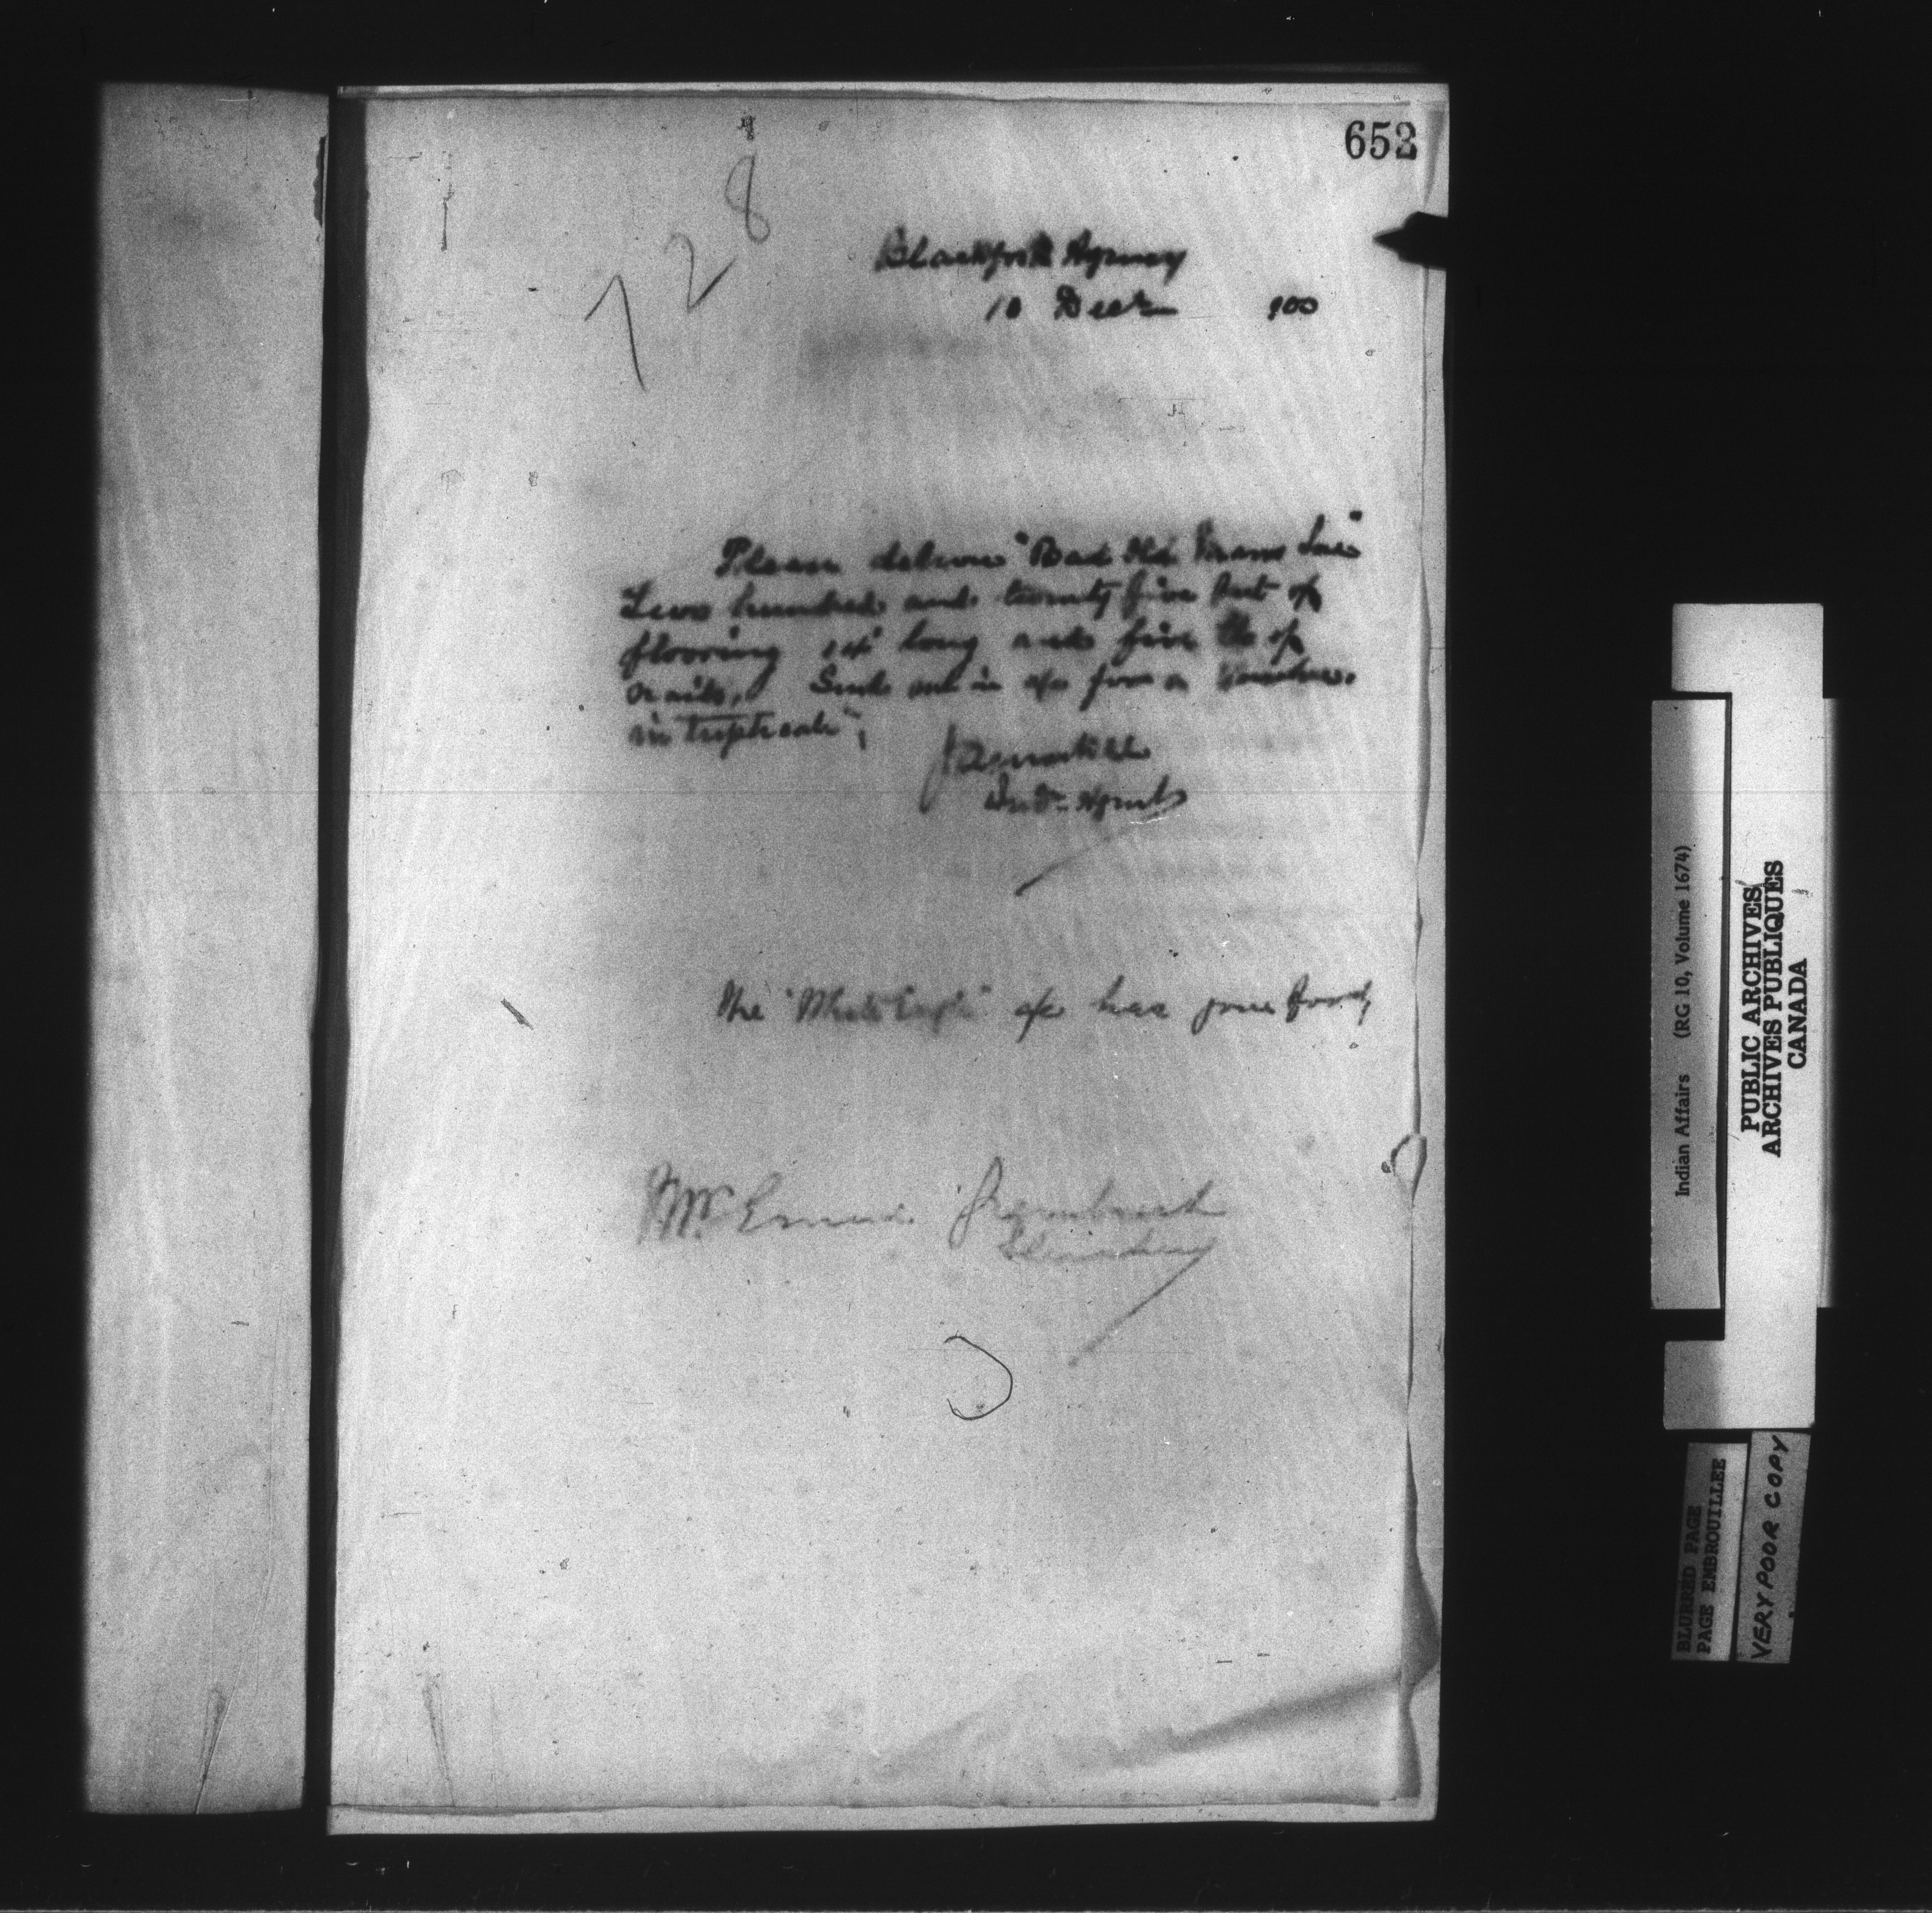 652
728
Blackfoot Agency
10 Decr 900
Please deliver "Bad Old Mans Son"
Two hundred and twenty five feet of
flooring 14' long and five lbs of
nails. Send me in a/c for a Voucher
in triplicate,
Ind. Agent
The "White Eagle" a/c has gone forwd,
Gleichen
Indian Affairs (RG 10, Volume 1674)
PUBLIC ARCHIVES
ARCHIVES PUBLIQUES
CANADA
BLURRED PAGE
PAGE EMBROUILLEE
VERY POOR COPY